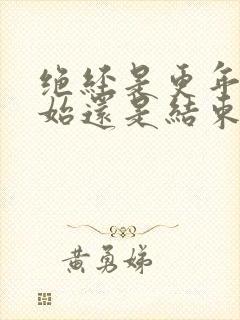 绝經是更年
始還是結束
黄勇娣